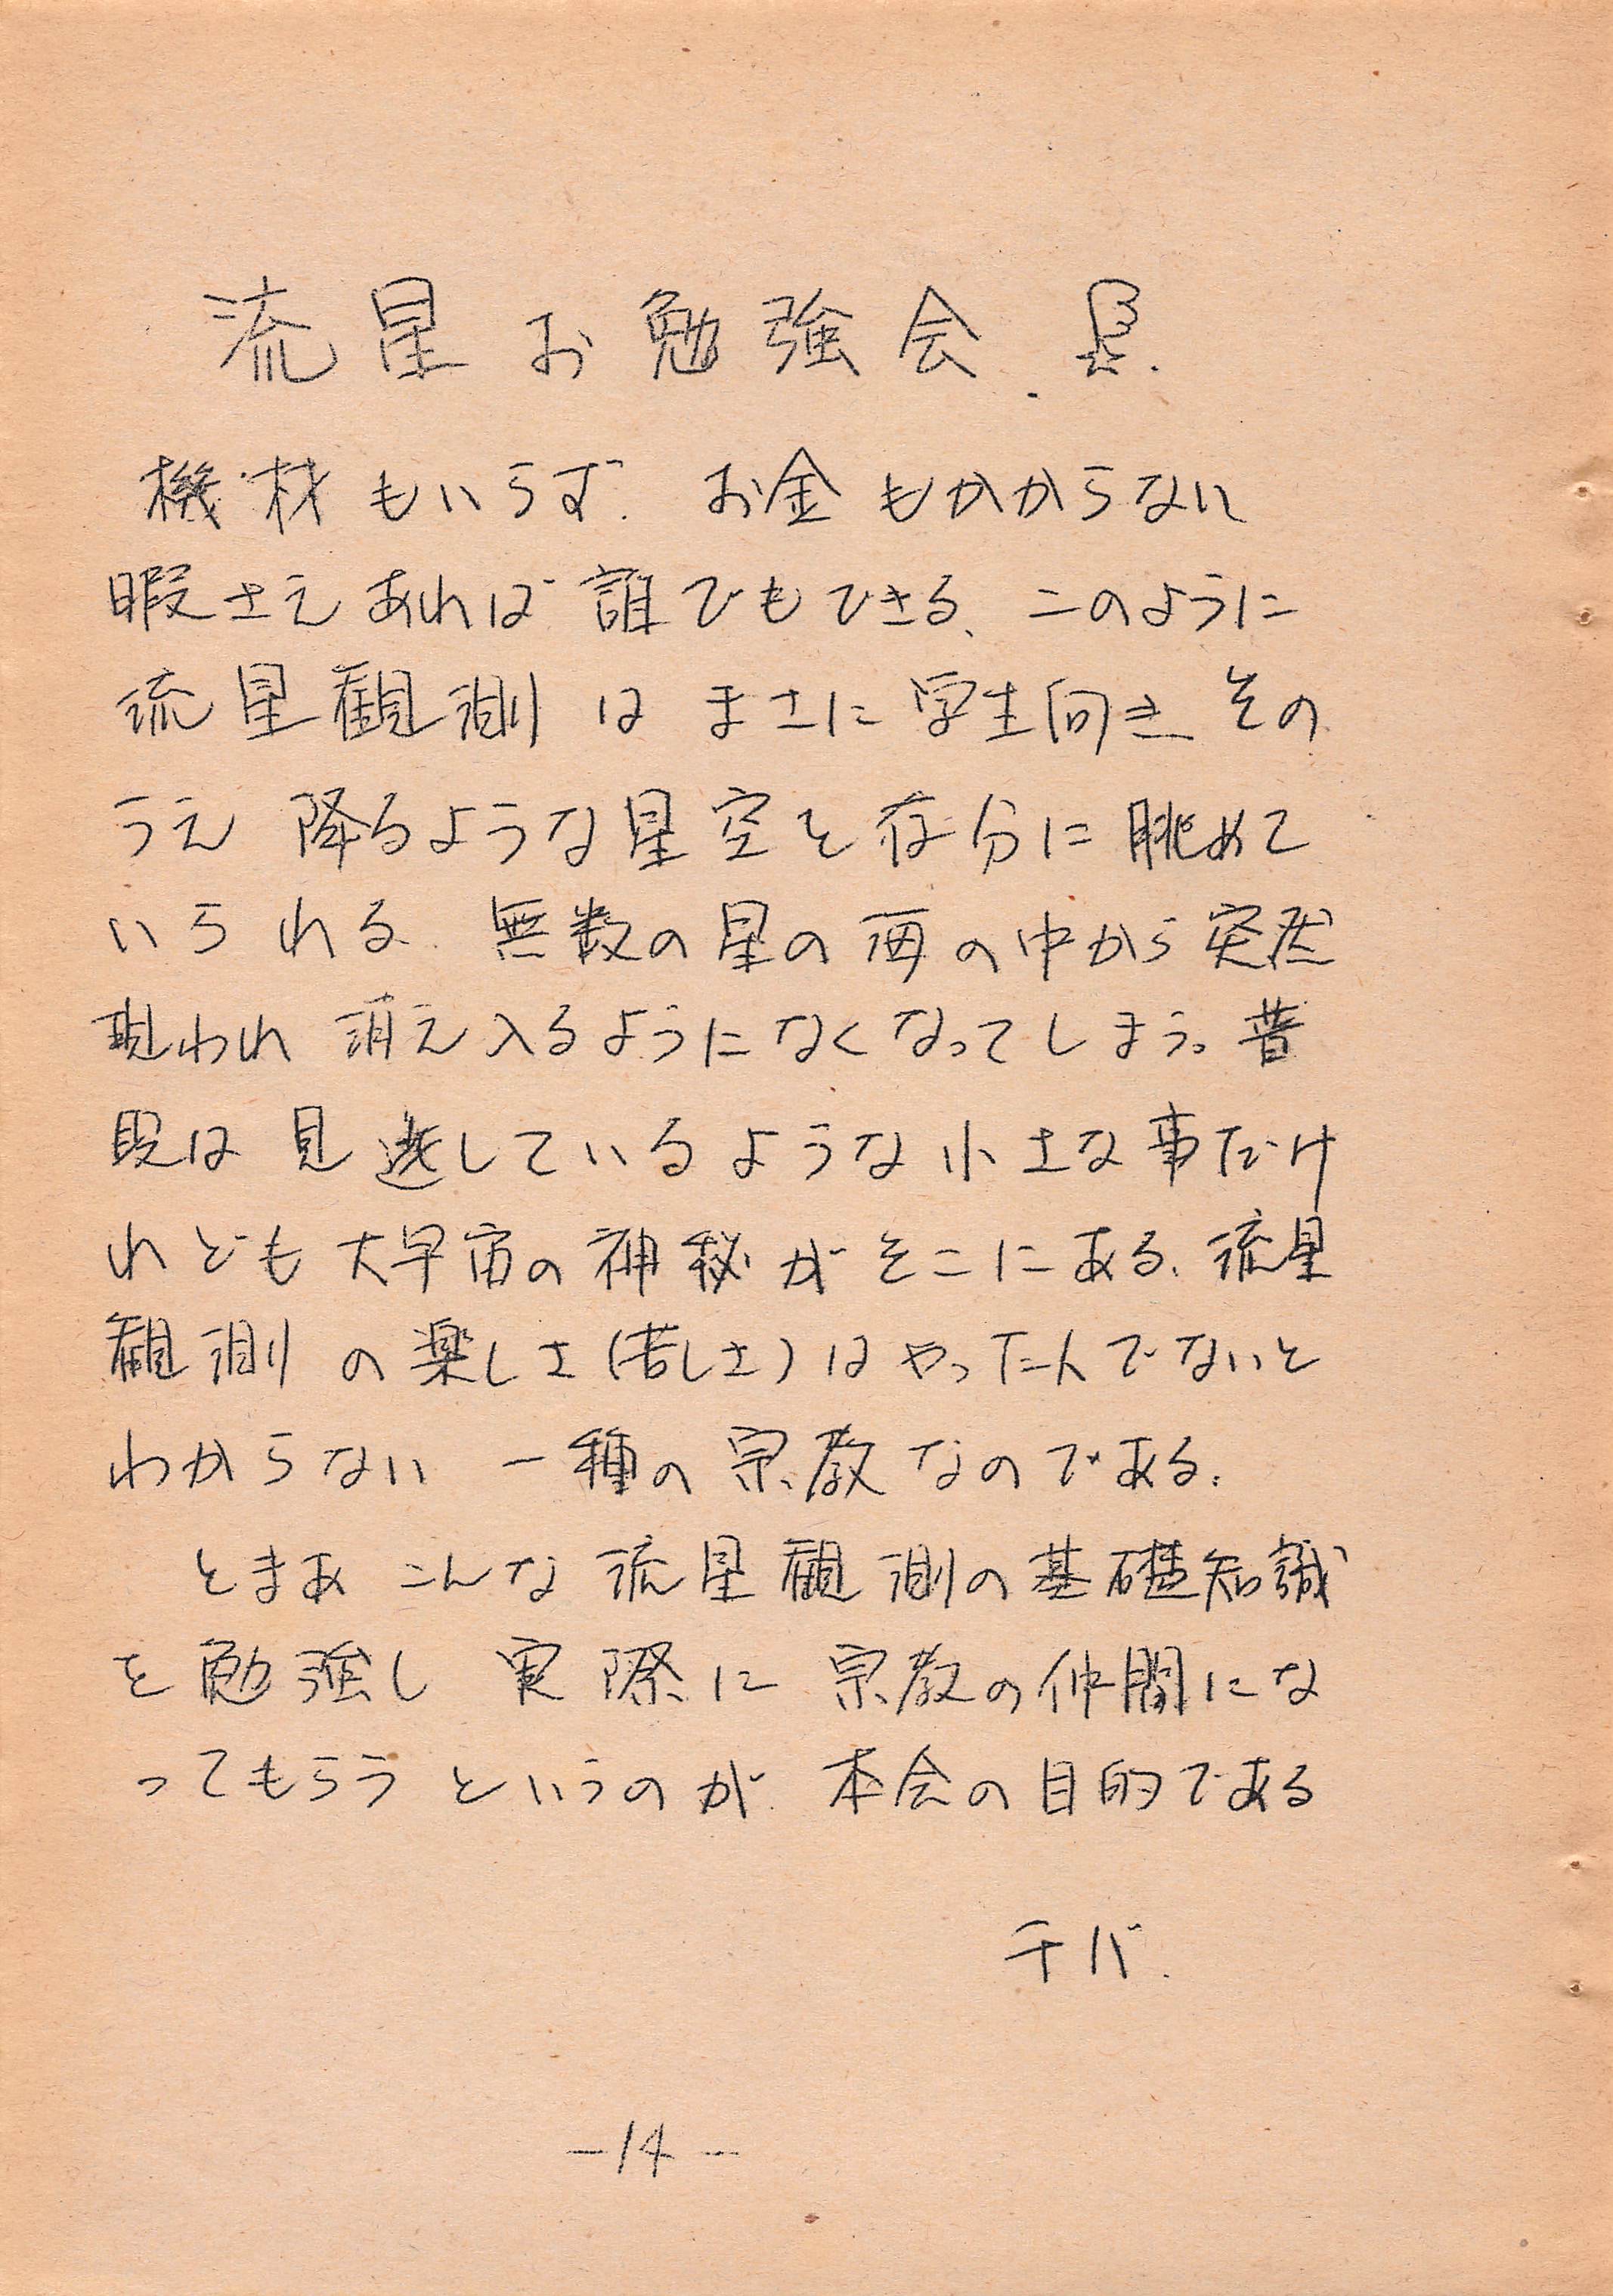 流星お勉強会
機材もいらず. お金もかからない
暇さえあれば誰でもできる、このように
流星観測はまさに学生向き その
うえ 降るような星空を存分に眺めて
いられる. 無数の星の海の中から突然
現われ 消え入るようになくなってしまう。普
段は見逃しているような小さな事だけ
れども大宇宙の神秘がそこにある. 流星
観測の楽しさ(苦しさ)はやった人でないと
わからない 一種の宗教なのである.
とまあ こんな流星観測の基礎知識
を勉強し 実際に 宗教の仲間にな
ってもらうというのが. 本会の目的である
チバ.
-14-